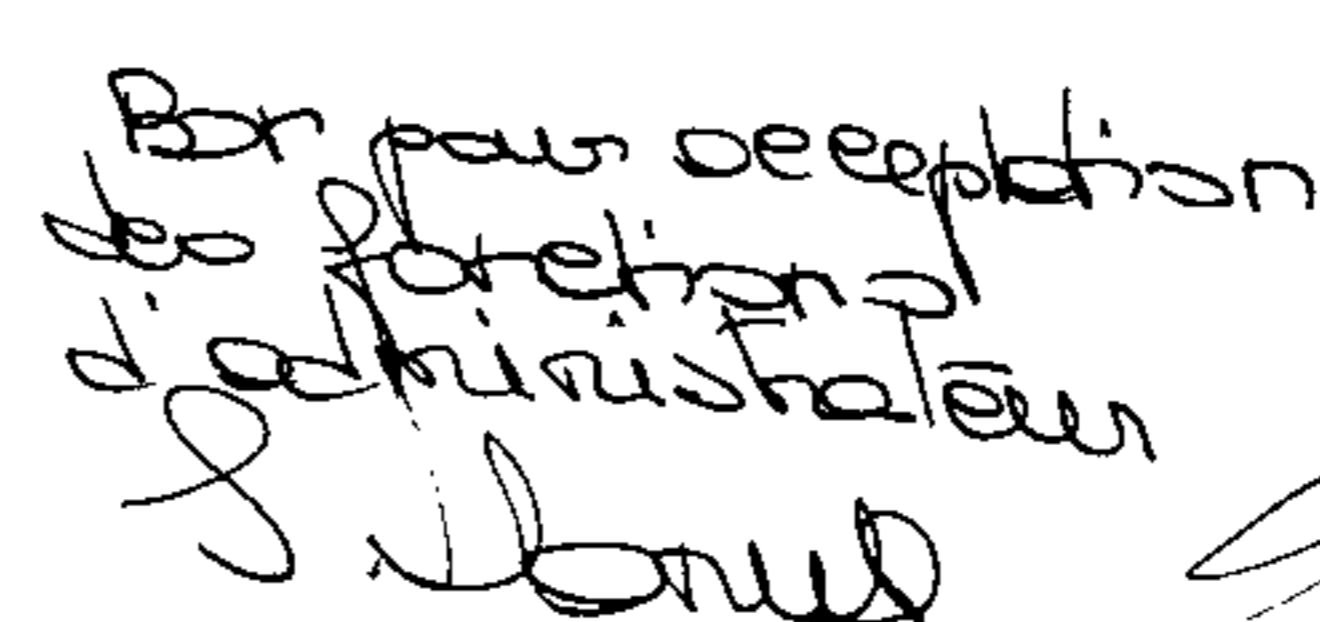 Bon pour acceptation
des fonctions
d'administrateur